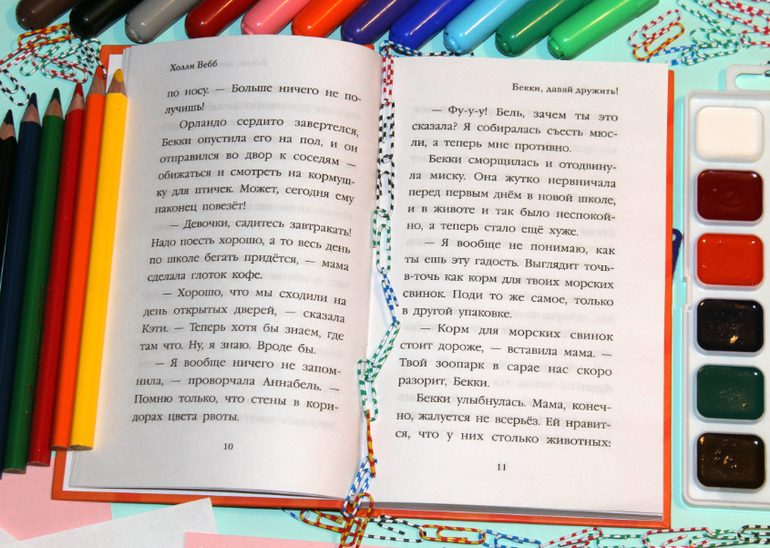 Холли Вебб
по носу. — Больше ничего не по-
лучишь!
Орландо сердито завертелся,
Бекки опустила его на пол, и он
отправился во двор к соседям —
обижаться и смотреть на кормуш-
ку для птичек. Может, сегодня ему
наконец повезёт!
— Девочки, садитесь завтракать!
Надо поесть хорошо, а то весь день
по школе бегать придётся, — мама
сделала глоток кофе.
— Хорошо, что мы сходили на
день открытых дверей, — сказала
Кэти. — Теперь хотя бы знаем, где
там что. Ну, я знаю. Вроде бы.
— Я вообще ничего не запом-
нила, — проворчала Аннабель. —
Помню только, что стены в кори-
дорах цвета рвоты.
10
Бекки, давай дружить!
— Фу-у-у! Бель, зачем ты это
сказала? Я собиралась съесть мюс-
ли, а теперь мне противно.
Бекки сморщилась и отодвину-
ла миску. Она жутко нервничала
перед первым днём в новой школе,
и в животе и так было неспокой-
но, а теперь стало ещё хуже.
— Я вообще не понимаю, как
ты ешь эту гадость. Выглядит точь-
в-точь как корм для твоих морских
свинок. Поди то же самое, только
в другой упаковке.
— Корм для морских свинок
стоит дороже, — вставила мама. —
Твой зоопарк в сарае нас скоро
разорит, Бекки.
Бекки улыбнулась. Мама, конеч-
но, жалуется не всерьёз. Ей нравит-
ся, что у них столько животных:
11